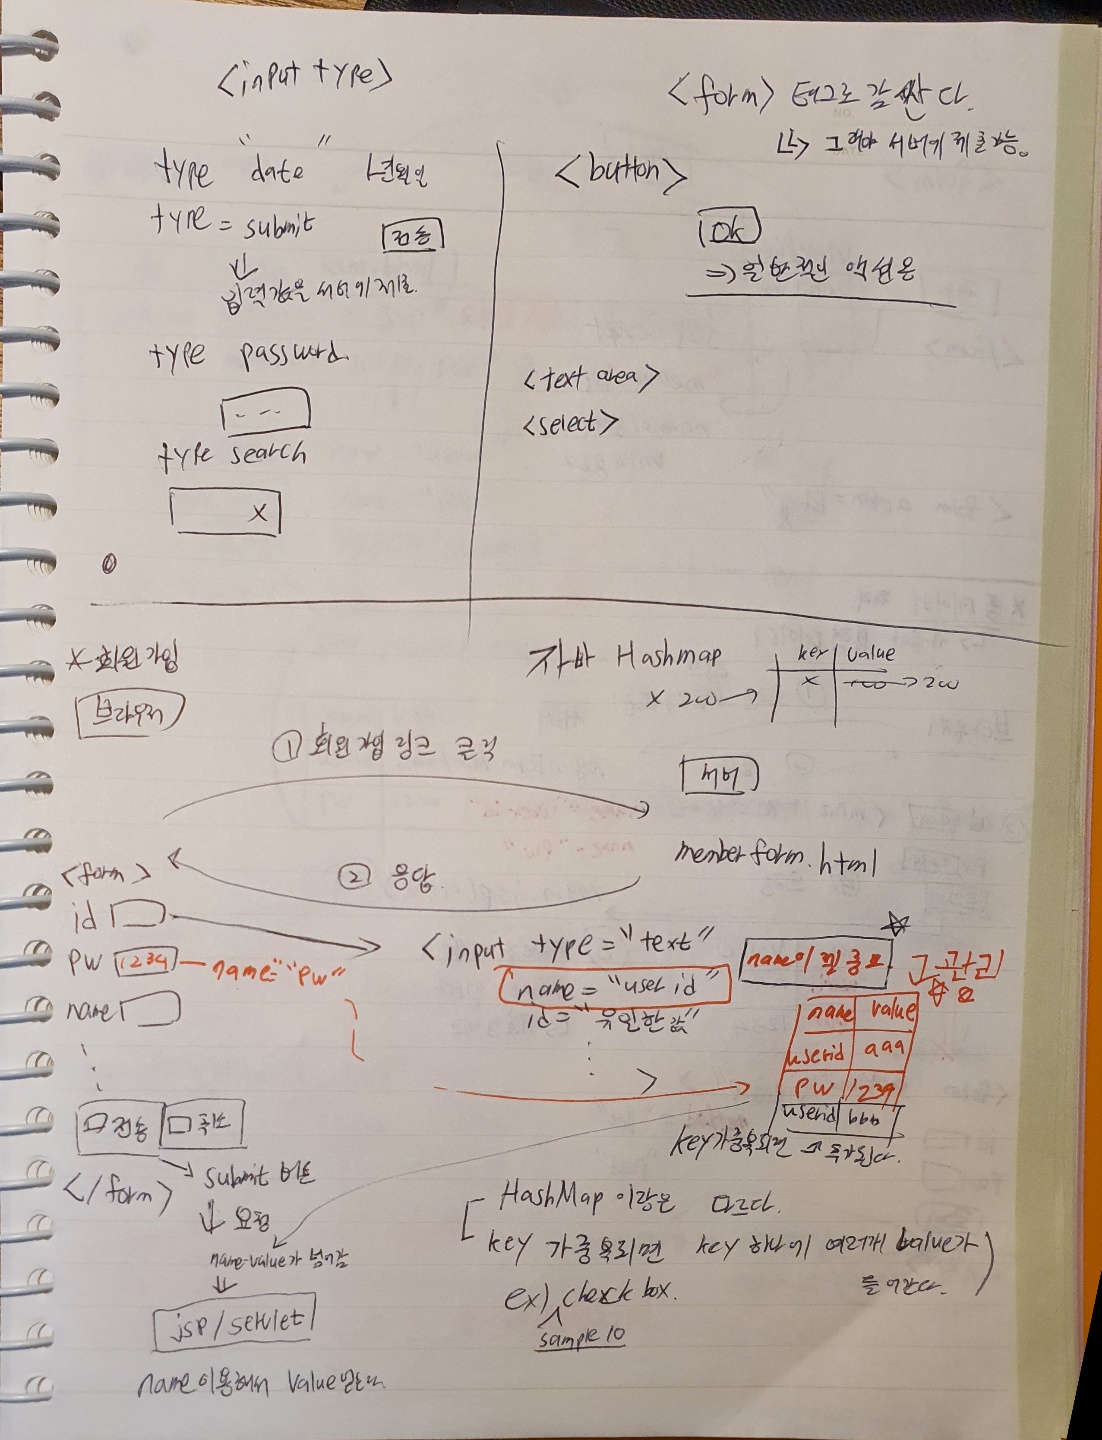 <input type>
type "date" 년월일
type = submit 전송
입력값을 서버에 제출
type password.
---
type search
x
<form> 태그로 감싼다.
↳> 그래야 서버에 제출가능.
<button>
OK
=> 일반적인 액션용
<text area>
<select>
* 회원가입
브라우저
자바 Hashmap
x 200 →
key value
x 100 → 200
① 회원가입 링크 클릭
서버
memberform.html
② 응답
<form>
id
PW 1234 name="PW"
name
<input type="text"
name = "user id"
id="유일한 값"
>
name이 젤 중요
name value
userid aaa
PW 1234
userid bbb
key가 중복되면 → 추가된다.
전송 취소
</form>
submit 버튼
요청
name-value가 넘어감
jsp/servlet
name 이용해서 value 받는다.
HashMap 이랑은 다르다.
key 가 중복되면 key 하나에 여러개 value가
들어간다.
ex) check box.
sample10